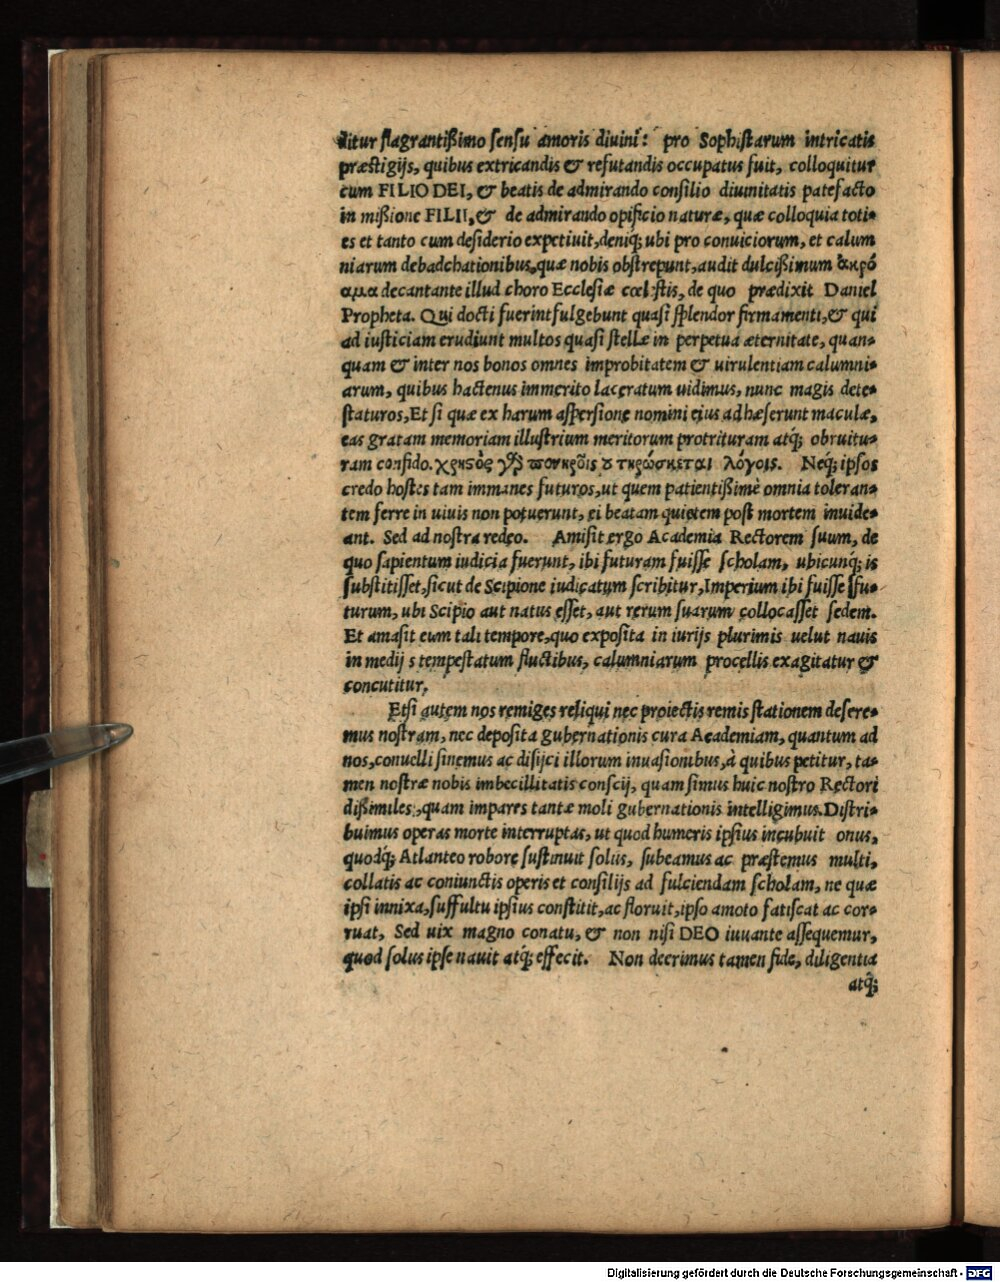 ditur flagrantißimo ſenſu amoris diuini: pro Sophiſtarum intricatis
præſtigijs, quibus extricandis & refutandis occupatus fuit, colloquitur
cum FILIO DEI, & beatis de admirando conſilio diuinitatis patefacto
in mißione FILII, & de admirando opificio naturæ, quæ colloquia toti-
es et tanto cum deſiderio expetiuit, deniq; ubi pro conuiciorum, et calum
niarum debadchationibus, quæ nobis obſtrepunt, audit dulcißimum ἀκρό
αμα decantante illud choro Eccleſiæ cœleſtis, de quo prædixit Daniel
Propheta. Qui docti fuerint fulgebunt quaſi ſplendor firmamenti, & qui
ad iuſticiam erudiunt multos quaſi ſtellæ in perpetua æternitate, quan-
quam & inter nos bonos omnes improbitatem & uirulentiam calumni-
arum, quibus hactenus immerito laceratum uidimus, nunc magis dete-
ſtaturos, Et ſi quæ ex harum aſperſione nomini eius adhæſerunt maculæ,
eas gratam memoriam illuſtrium meritorum protrituram atq; obruitu-
ram confido. χρηστὸς γὰρ πονηροῖς ȣ τιτρώσκεται λόγοις. Neq; ipſos
credo hoſtes tam immanes futuros, ut quem patientißimè omnia toleran-
tem ferre in uiuis non potuerunt, ei beatam quietem poſt mortem inuide-
ant. Sed ad noſtra redeo. Amiſit ergo Academia Rectorem ſuum, de
quo ſapientum iudicia fuerunt, ibi futuram fuiſſe ſcholam, ubicunq; is
ſubſtitiſſet, ſicut de Scipione iudicatum ſcribitur, Imperium ibi fuiſſe fu-
turum, ubi Scipio aut natus eſſet, aut rerum ſuarum collocaſſet ſedem.
Et amaſit eum tali tempore, quo expoſita in iurijs plurimis uelut nauis
in medij s tempeſtatum fluctibus, calumniarum procellis exagitatur &
concutitur.
Etſi autem nos remiges reliqui nec proiectis remis ſtationem deſere-
mus noſtram, nec depoſita gubernationis cura Academiam, quantum ad
nos, conuelli ſinemus ac diſijci illorum inuaſionibus, à quibus petitur, ta-
men noſtræ nobis imbecillitatis conſcij, quam ſimus huic noſtro Rectori
dißimiles, quam impares tantæ moli gubernationis intelligimus. Diſtri-
buimus operas morte interruptas, ut quod humeris ipſius incubuit onus,
quodq; Atlanteo robore ſuſtinuit ſolus, ſubeamus ac præſtemus multi,
collatis ac coniunctis operis et conſilijs ad fulciendam ſcholam, ne quæ
ipſi innixa, ſuffultu ipſius conſtitit, ac floruit, ipſo amoto fatiſcat ac cor-
ruat, Sed uix magno conatu, & non niſi DEO iuuante aſſequemur,
quod ſolus ipſe nauit atq; effecit. Non deerimus tamen fide, diligentia
atq;
Digitalisierung gefördert durch die Deutsche Forschungsgemeinschaft - DFG